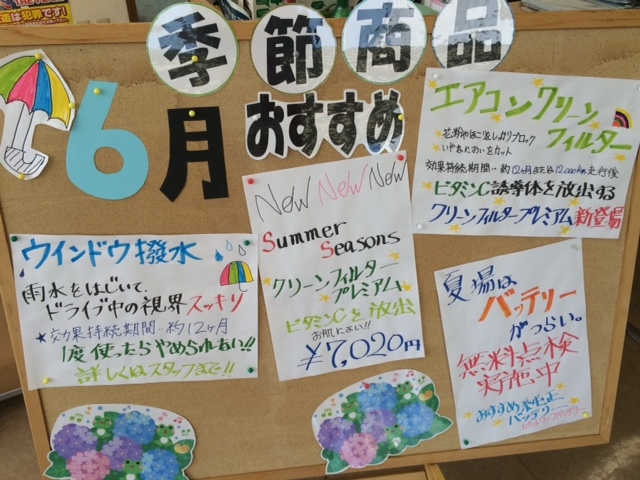 は犯罪です!
季節商品
6月
おすすめ
エアコンクリーン
フィルター
花粉やほこりをしっかりブロック
いやなにおいをカット
効果持続期間…約12ヶ月または12,000km走行後
ビタミンC誘導体を放出する
クリーンフィルタープレミアム新登場
New New New
Summer
Seasons
クリーンフィルター
プレミアム
ビタミンCを放出
お肌によい!!
¥7,020円
ウインドウ撥水
雨水をはじいて、
ドライブ中の視界スッキリ
★効果持続期間…約12ヶ月
1度使ったらやめられない!!
詳しくはスタッフまで!!
夏場は
バッテリー
がつらい。
無料点検
実施中
おすすめ純正
バッテリー